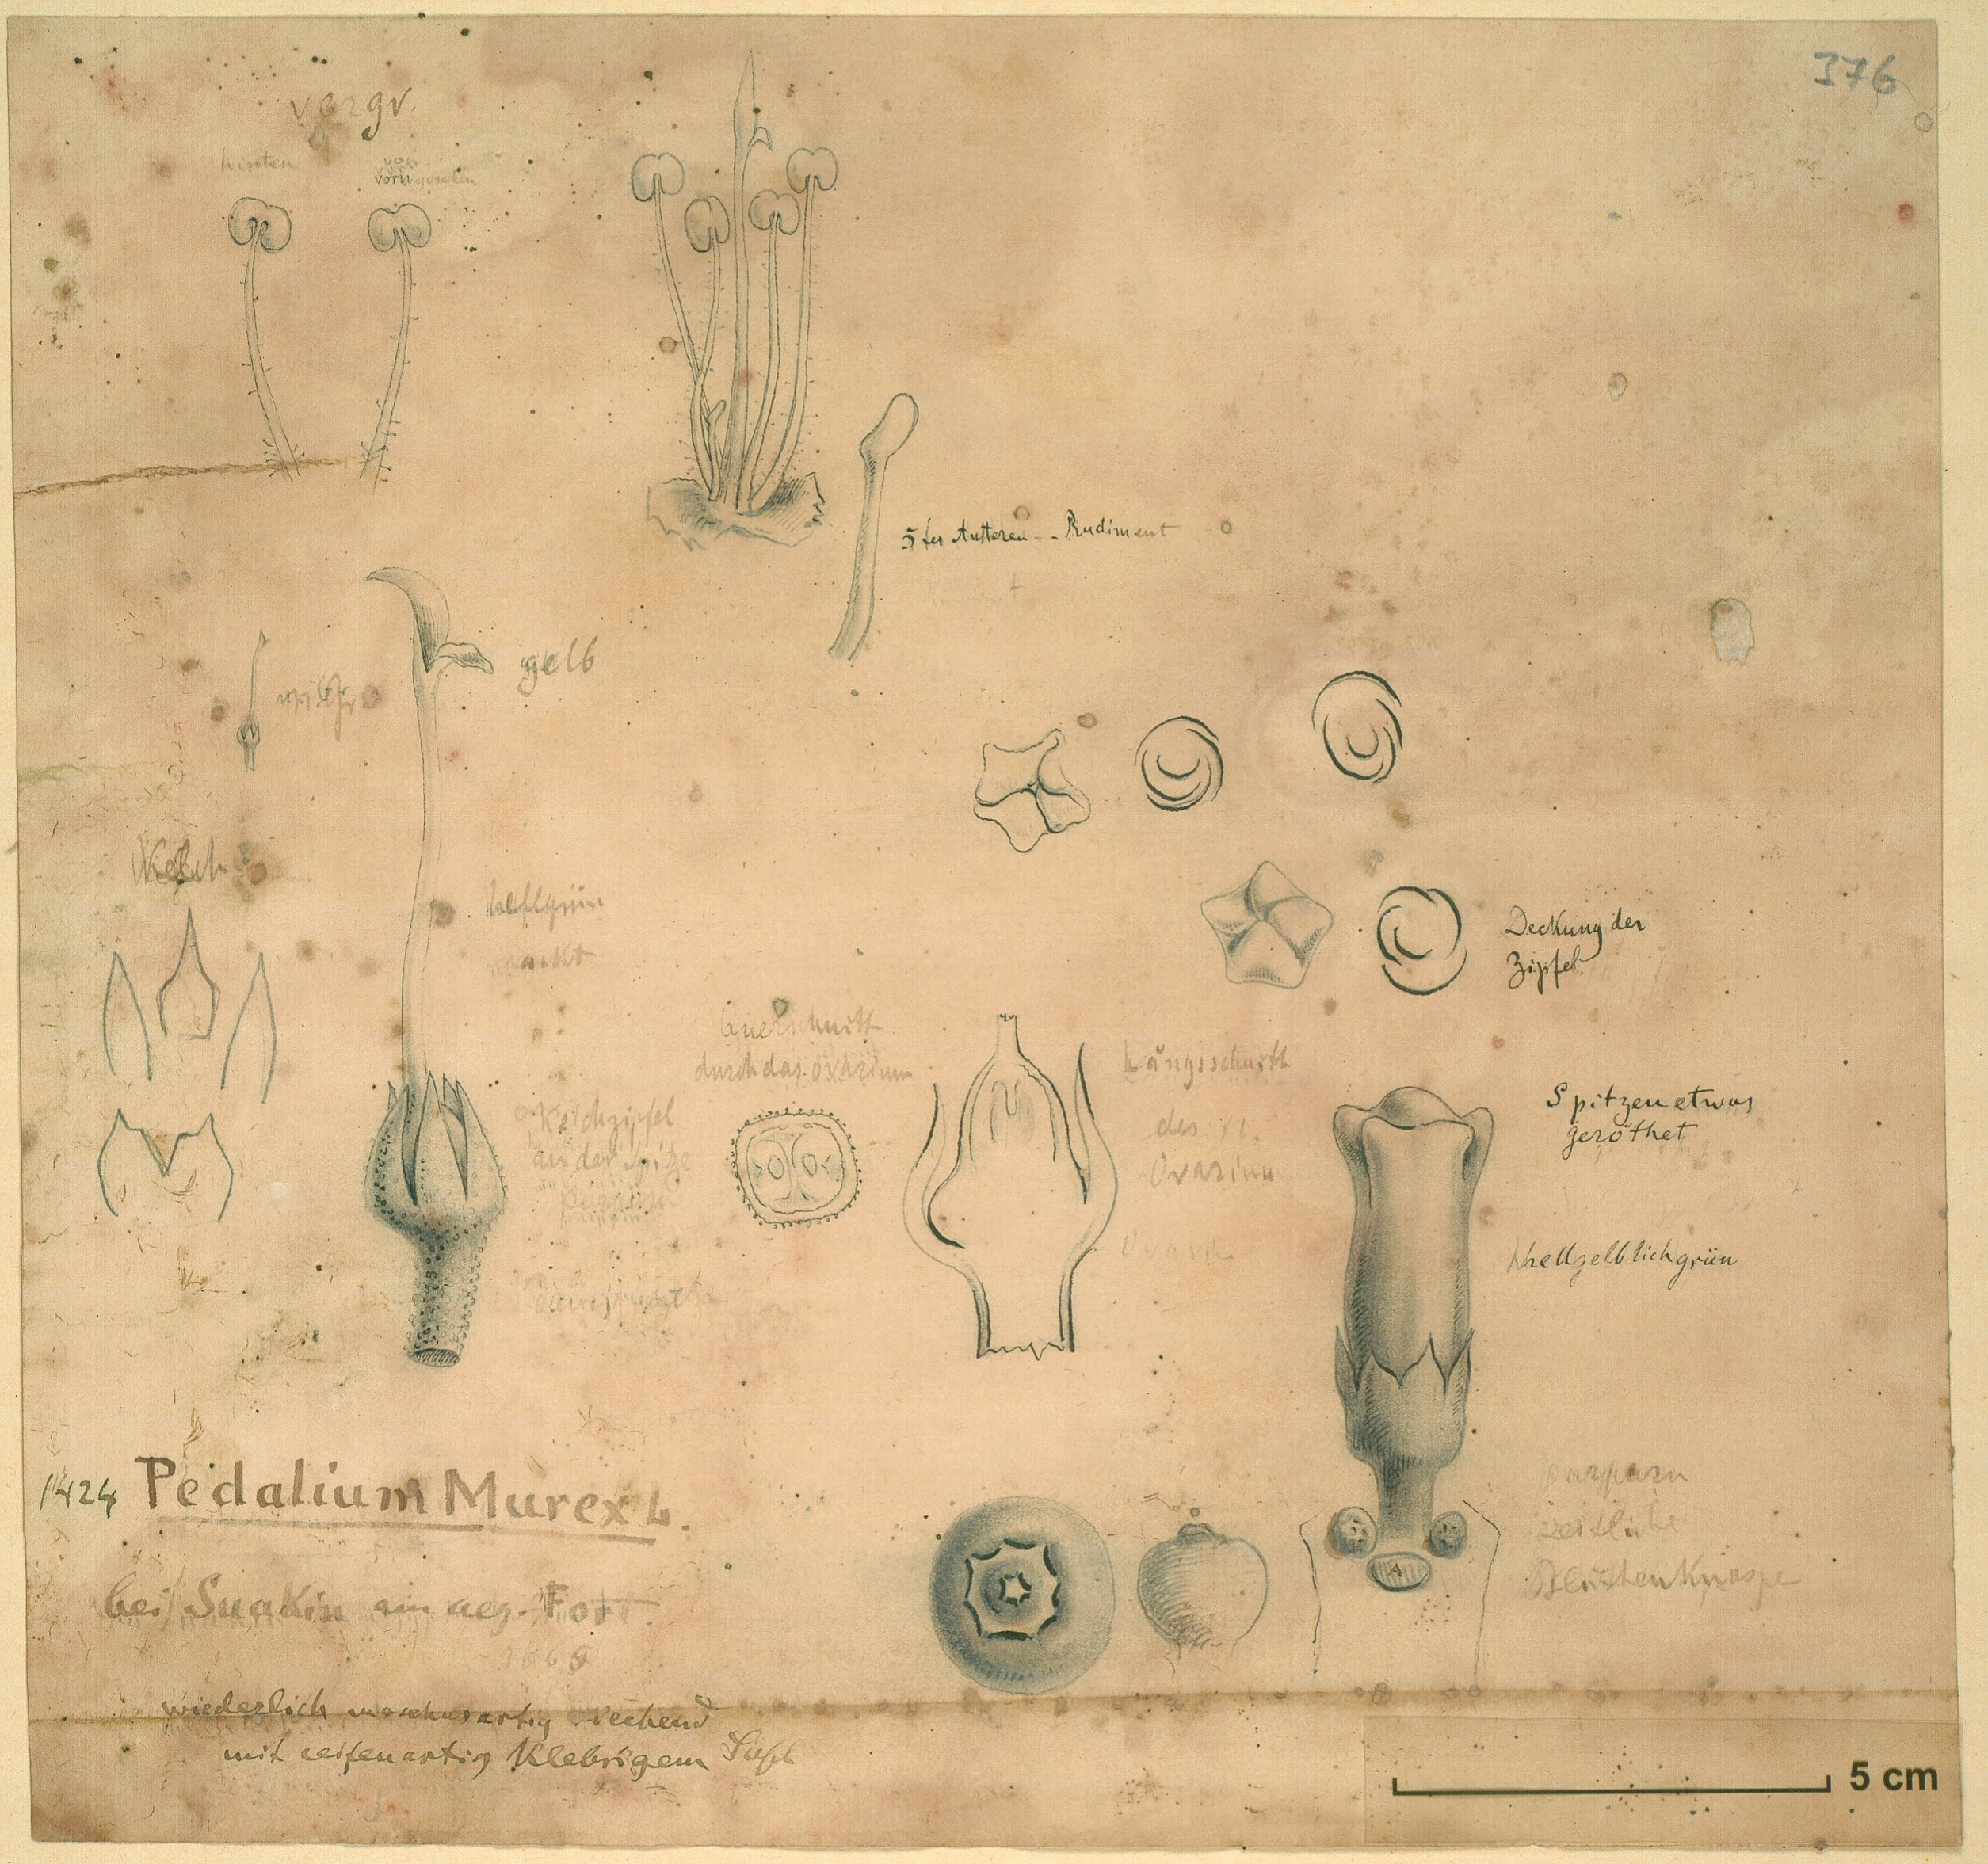 376
vergr.
hinten
von
vorn gesehen
5ter Antteren - Rudiment
gelb
Kelch
hellgrün
nackt
Deckung der
Zipfel
Querschnitt
durch das Ovarium
Längsschnitt
des
Ovarium
Kelchzipfel
an der Spitze
Spitzen etwas
geröthet
hellgelblichgrün
1424 Pedalium Murex L.
bei Suakin am aeg. Fort
purpurn
seitliche
Blüthenknospe
A
wiederlich moschusartig riechend
mit seifenartig klebrigem Saft
5 cm